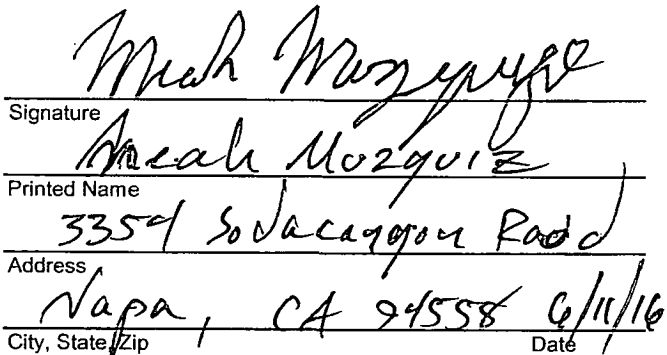 Signature
Meah Mozquiz
Printed Name
3354 Sodacanyon Road
Address
Napa, CA 94558 6/11/16
City, State, Zip Date